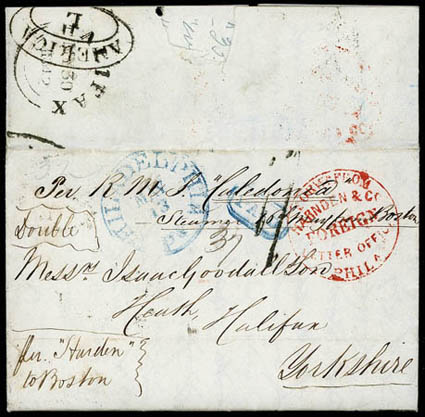 AMERICA
L
HALIFAX
30
PHILADELPHIA
Per R. M. S. "Caledonia
Steamer 16th May from Boston
Double
37
FORW'D FROM
HARNDEN & Co
FOREIGN
LETTER OFFICE
PHILA
Messrs Isaac Goodall & Son
Heath, Halifax
Yorkshire
per. "Harden"
to Boston